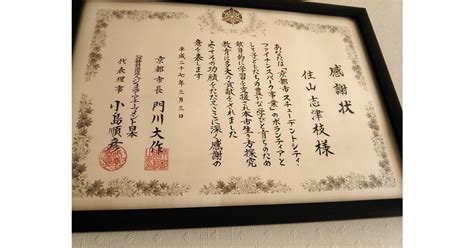 感謝状
住山志津枝様
あなたは「京都市スチューデントシティ・
ファイナンスパーク事業」のボランティアと
して子どもたちの豊かな学びと育ちのため
献身的に学習を支援され本市生き方探究
教育に多大の貢献をされました
よってその功績をたたえここに深く感謝の
意を表します
平成二十七年三月三日
京都市長 門川大作
代表理事 小島順彦